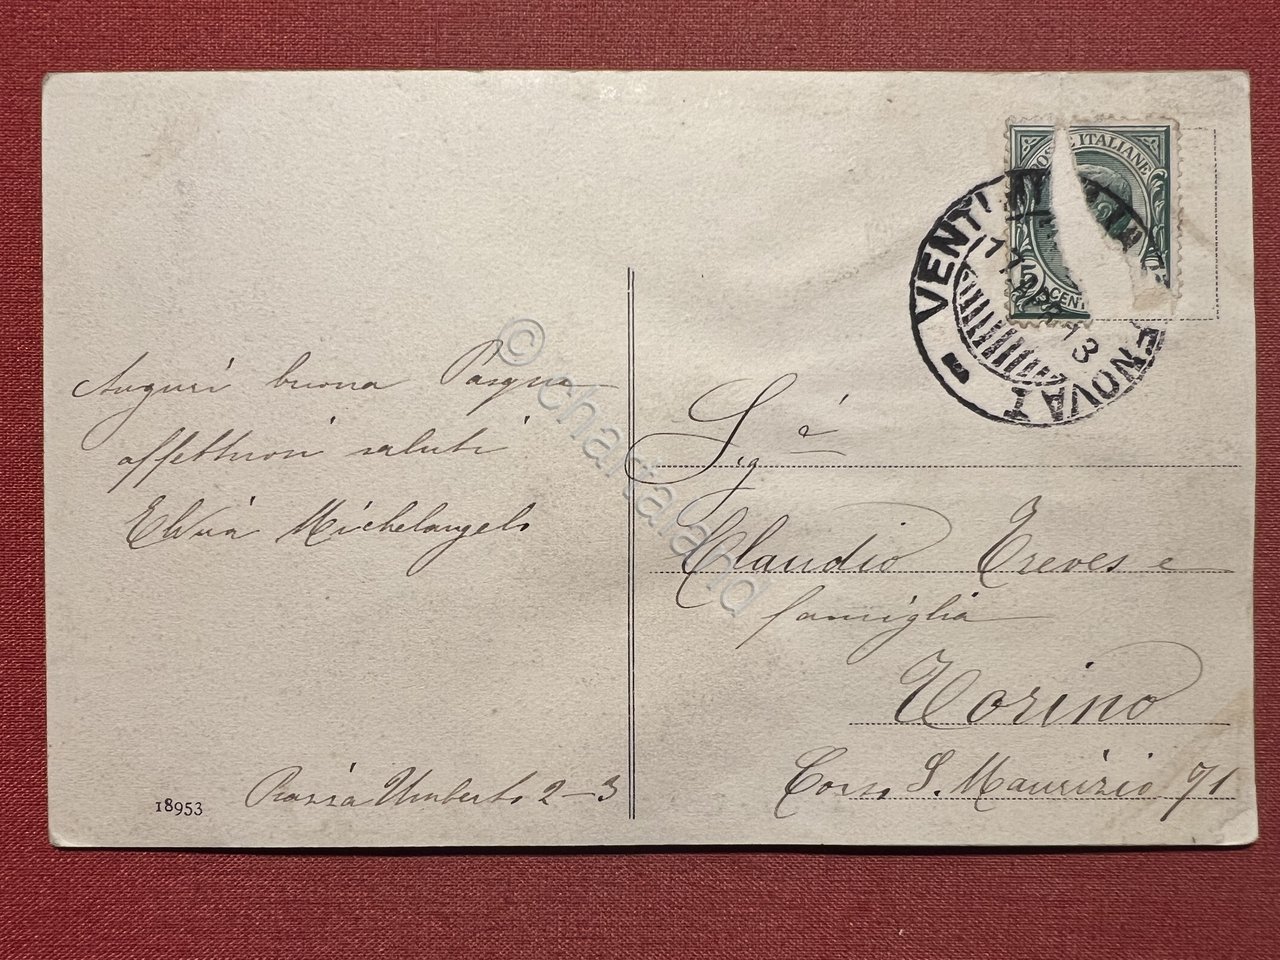 Auguri buona Pasqua
affettuosi saluti
Elvira Michelangelo
Piazza Umberto 2-3
18953
POSTE ITALIANE
5 CENT
17 APR 13
Sig a
Claudio Treves e
famiglia
Torino
Corso S. Maurizio 71
© chartaland